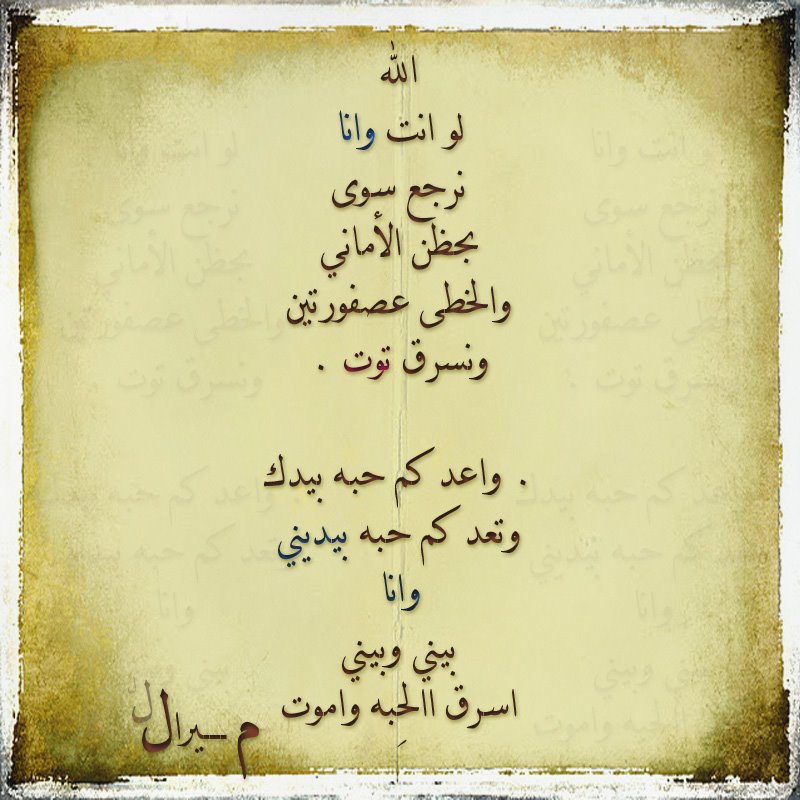 الله
لو انت وانا
نرجع سوى
بحظن الأماني
والخطى عصفورتين
ونسرق توت .
. واعد كم حبه بيدك
وتعد كم حبه بيديني
وانا
بيني وبيني
اسرق االحبه واموت
مـيرال